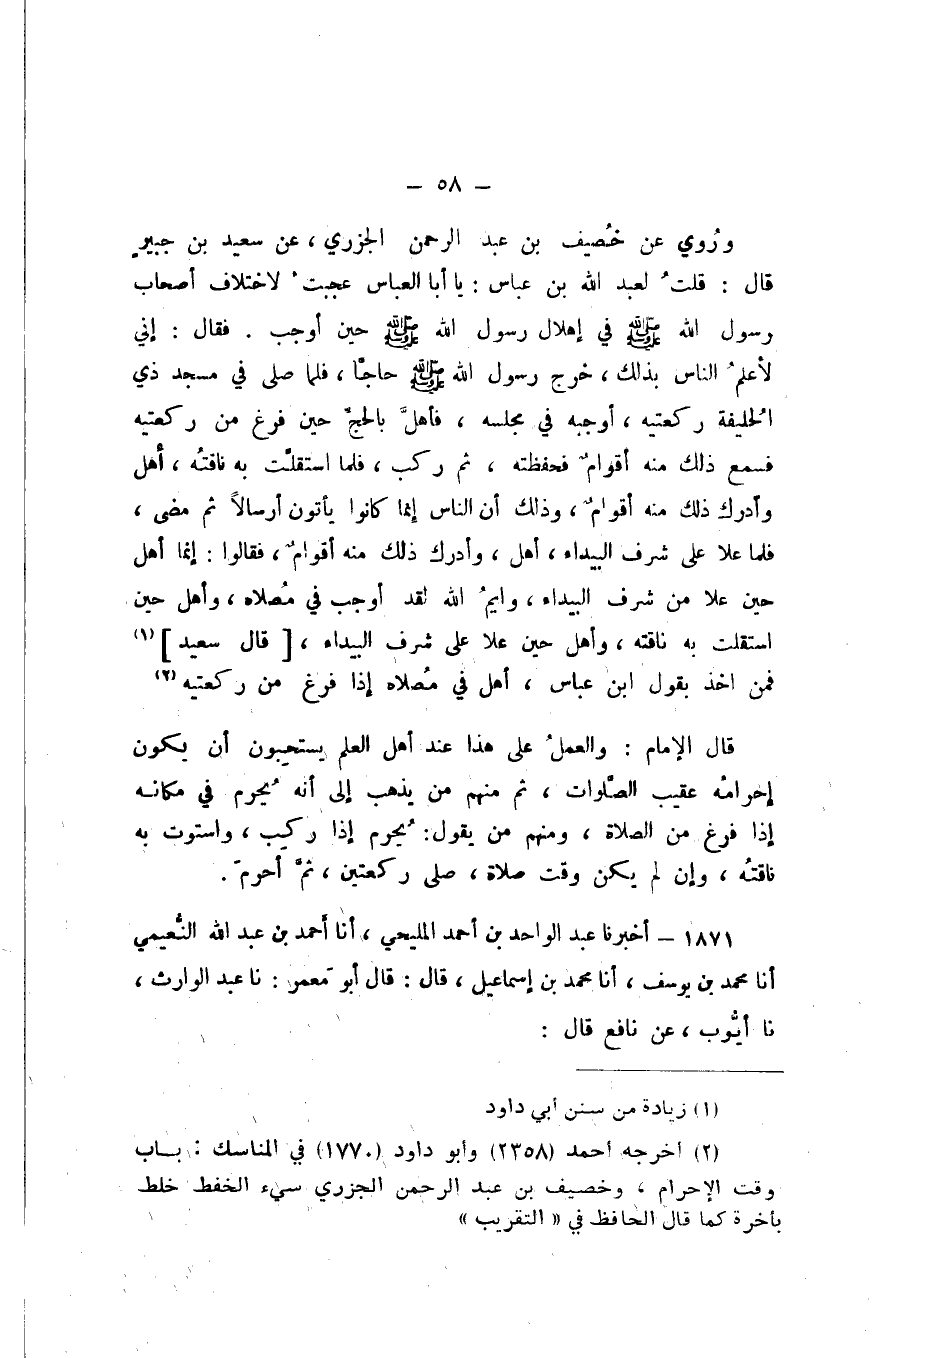 — ٥٨ —
ورُوي عن خُصيف بن عبد الرحمن الجزري ، عن سعيد بن جبير
قال : قلتُ لعبد الله بن عباس : يا أبا العباس عجبتُ لاختلاف أصحاب
رسول الله ﷺ في إهلال رسول الله ﷺ حين أوجب . فقال : إني
لأعلمُ الناس بذلك ، خرج رسول الله ﷺ حاجّا ، فلما صلى في مسجد ذي
الحُليفة ركعتيه ، أوجبه في مجلسه ، فأهلَّ بالحجّ حين فرغ من ركعتيه
فسمع ذلك منه أقوامٌ فحفظته ، ثم ركب ، فلما استقلَّت به ناقتُه ، أهل
وأدرك ذلك منه أقوامٌ ، وذلك أن الناس إنما كانوا يأتون أرسالاً ثم مضى ،
فلما علا على شرف البيداء ، أهل ، وأدرك ذلك منه أقوامٌ ، فقالوا : إنما أهل
حين علا من شرف البيداء ، وايمُ الله لقد أوجب في مُصلاه ، وأهل حين
استقلت به ناقته ، وأهل حين علا على شرف البيداء ، [ قال سعيد ] (١)
فمن اخذ بقول ابن عباس ، أهل في مُصلاه إذا فرغ من ركعتيه (٢)
قال الإمام : والعملُ على هذا عند أهل العلم يستحبون أن يكون
إحرامُه عقيب الصَّلوات ، ثم منهم من يذهب إلى أنه يُحرم في مكانه
إذا فرغ من الصلاة ، ومنهم من يقول : يُحرم إذا ركب ، واستوت به
ناقتُه ، وإن لم يكن وقت صلاة ، صلى ركعتين ، ثمَّ أحرمَ .
١٨٧١ – أخبرنا عبد الواحد بن أحمد المليحي ، أنا أحمد بن عبد الله النُّعيمي
أنا محمد بن يوسف ، أنا محمد بن إسماعيل ، قال : قال أبو مَعمر : نا عبد الوارث ،
نا أيُّوب ، عن نافع قال :
(١) زيادة من سنن أبي داود
(٢) أخرجه أحمد (٢٣٥٨) وأبو داود (١٧٧٠) في المناسك : باب
وقت الإحرام ، وخصيف بن عبد الرحمن الجزري سيء الحفظ خلط
بأخرة كما قال الحافظ في « التقريب »